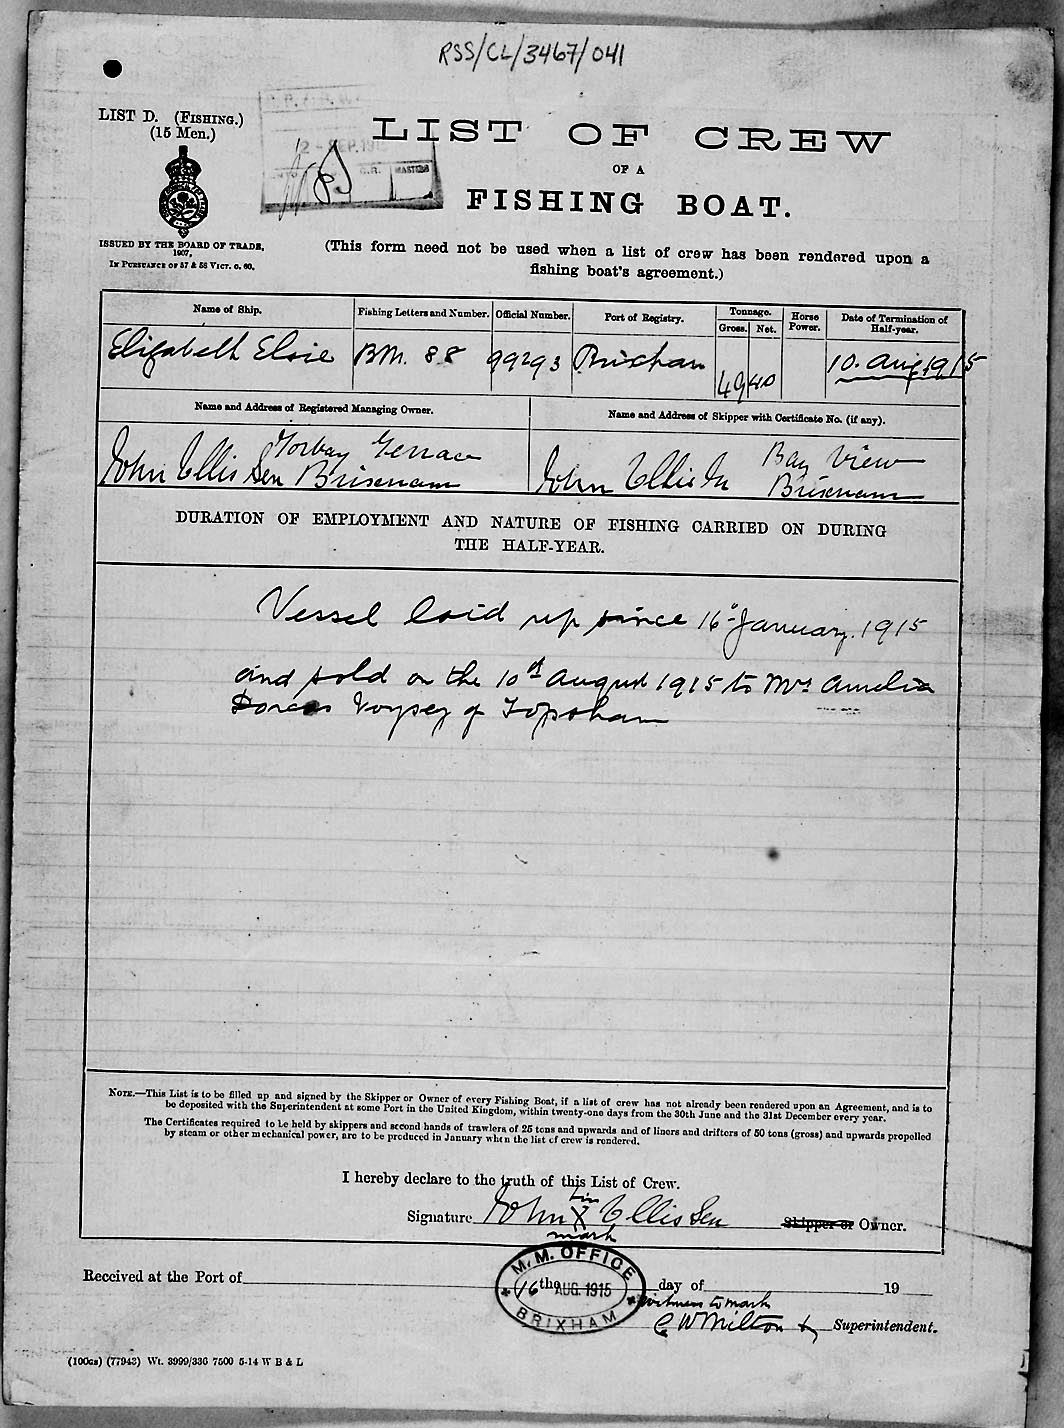 RSS/CL/3467/041
LIST D. (FISHING.)
(15 Men.)
2 - SEP. 1915
G.R. MASTERS
LIST OF CREW
OF A
FISHING BOAT.
ISSUED BY THE BOARD OF TRADE,
1907,
IN PURSUANCE OF 57 & 58 VICT. C. 60.
(This form need not be used when a list of crew has been rendered upon a
fishing boat's agreement.)
Name of Ship. Fishing Letters and Number. Official Number. Port of Registry. Tonnage. Horse Power. Date of Termination of Half-year.
Gross. Net.
Elizabeth Elsie BM. 88 99293 Brixham 49 40 10. Aug 1915
Name and Address of Registered Managing Owner. Name and Address of Skipper with Certificate No. (if any).
Torbay Terrace Bay View
John Ellis Sen Brixham John Ellis Jr Brixham
DURATION OF EMPLOYMENT AND NATURE OF FISHING CARRIED ON DURING
THE HALF-YEAR.
Vessel laid up since 16th January. 1915
and sold on the 10th August 1915 to Mrs Amelia
Dorcas Voysey of Topsham
NOTE.—This List is to be filled up and signed by the Skipper or Owner of every Fishing Boat, if a list of crew has not already been rendered upon an Agreement, and is to
be deposited with the Superintendent at some Port in the United Kingdom, within twenty-one days from the 30th June and the 31st December every year.
The Certificates required to be held by skippers and second hands of trawlers of 25 tons and upwards and of liners and drifters of 50 tons (gross) and upwards propelled
by steam or other mechanical power, are to be produced in January when the list of crew is rendered.
I hereby declare to the truth of this List of Crew.
his
Signature John X Ellis Sen Skipper or Owner.
mark
M.M. OFFICE
Received at the Port of 16th AUG. 1915 day of 19
BRIXHAM
witness to mark
C W Milton Superintendent.
(100GS) (77943) Wt. 3999/336 7500 5-14 W B & L